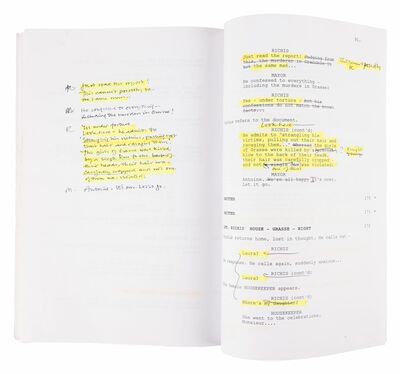 R. Just read this report!
This cannot possibly be
the same man.
M. He confesses to everything -
including the murders in Grasse!
R. Yes under torture.
Look here - he admits to
"strangling his victims, pulling out
their hair and ravaging them".
the girls of Grasse were killed
by a single blow to the back of
their heads, their hair was
carefully cropped and not one
of them was violated.
M. Antoine. It's over. Let it go.
RICHIS
Just read the report! Judging from
this, the murderer in Grenoble is
not the same man...
MAYOR
He confessed to everything -
including the murders in Grasse!
RICHIS
Yes - under torture - but his
confessions do not match the
refers to the document.
Look here
RICHIS (cont'd)
He admits to "strangling his
victims, pulling out their hair and
ravaging them..." Whereas the girls
of Grasse were killed by a single
blow to the back of their heads,
their hair was carefully cropped
and not a single one was violated.
MAYOR
Antoine. It's over.
Let it go.
OMITTED
OMITTED
INT. RICHIS HOUSE - GRASSE - NIGHT
returns home, lost in thought. He calls out.
RICHIS
Laura?
response. He calls again, suddenly anxious...
RICHIS (cont'd)
Laura?
HOUSEKEEPER appears.
RICHIS (cont'd)
Where's my daughter?
HOUSEKEEPER
She went to the celebrations,
Monsieur....